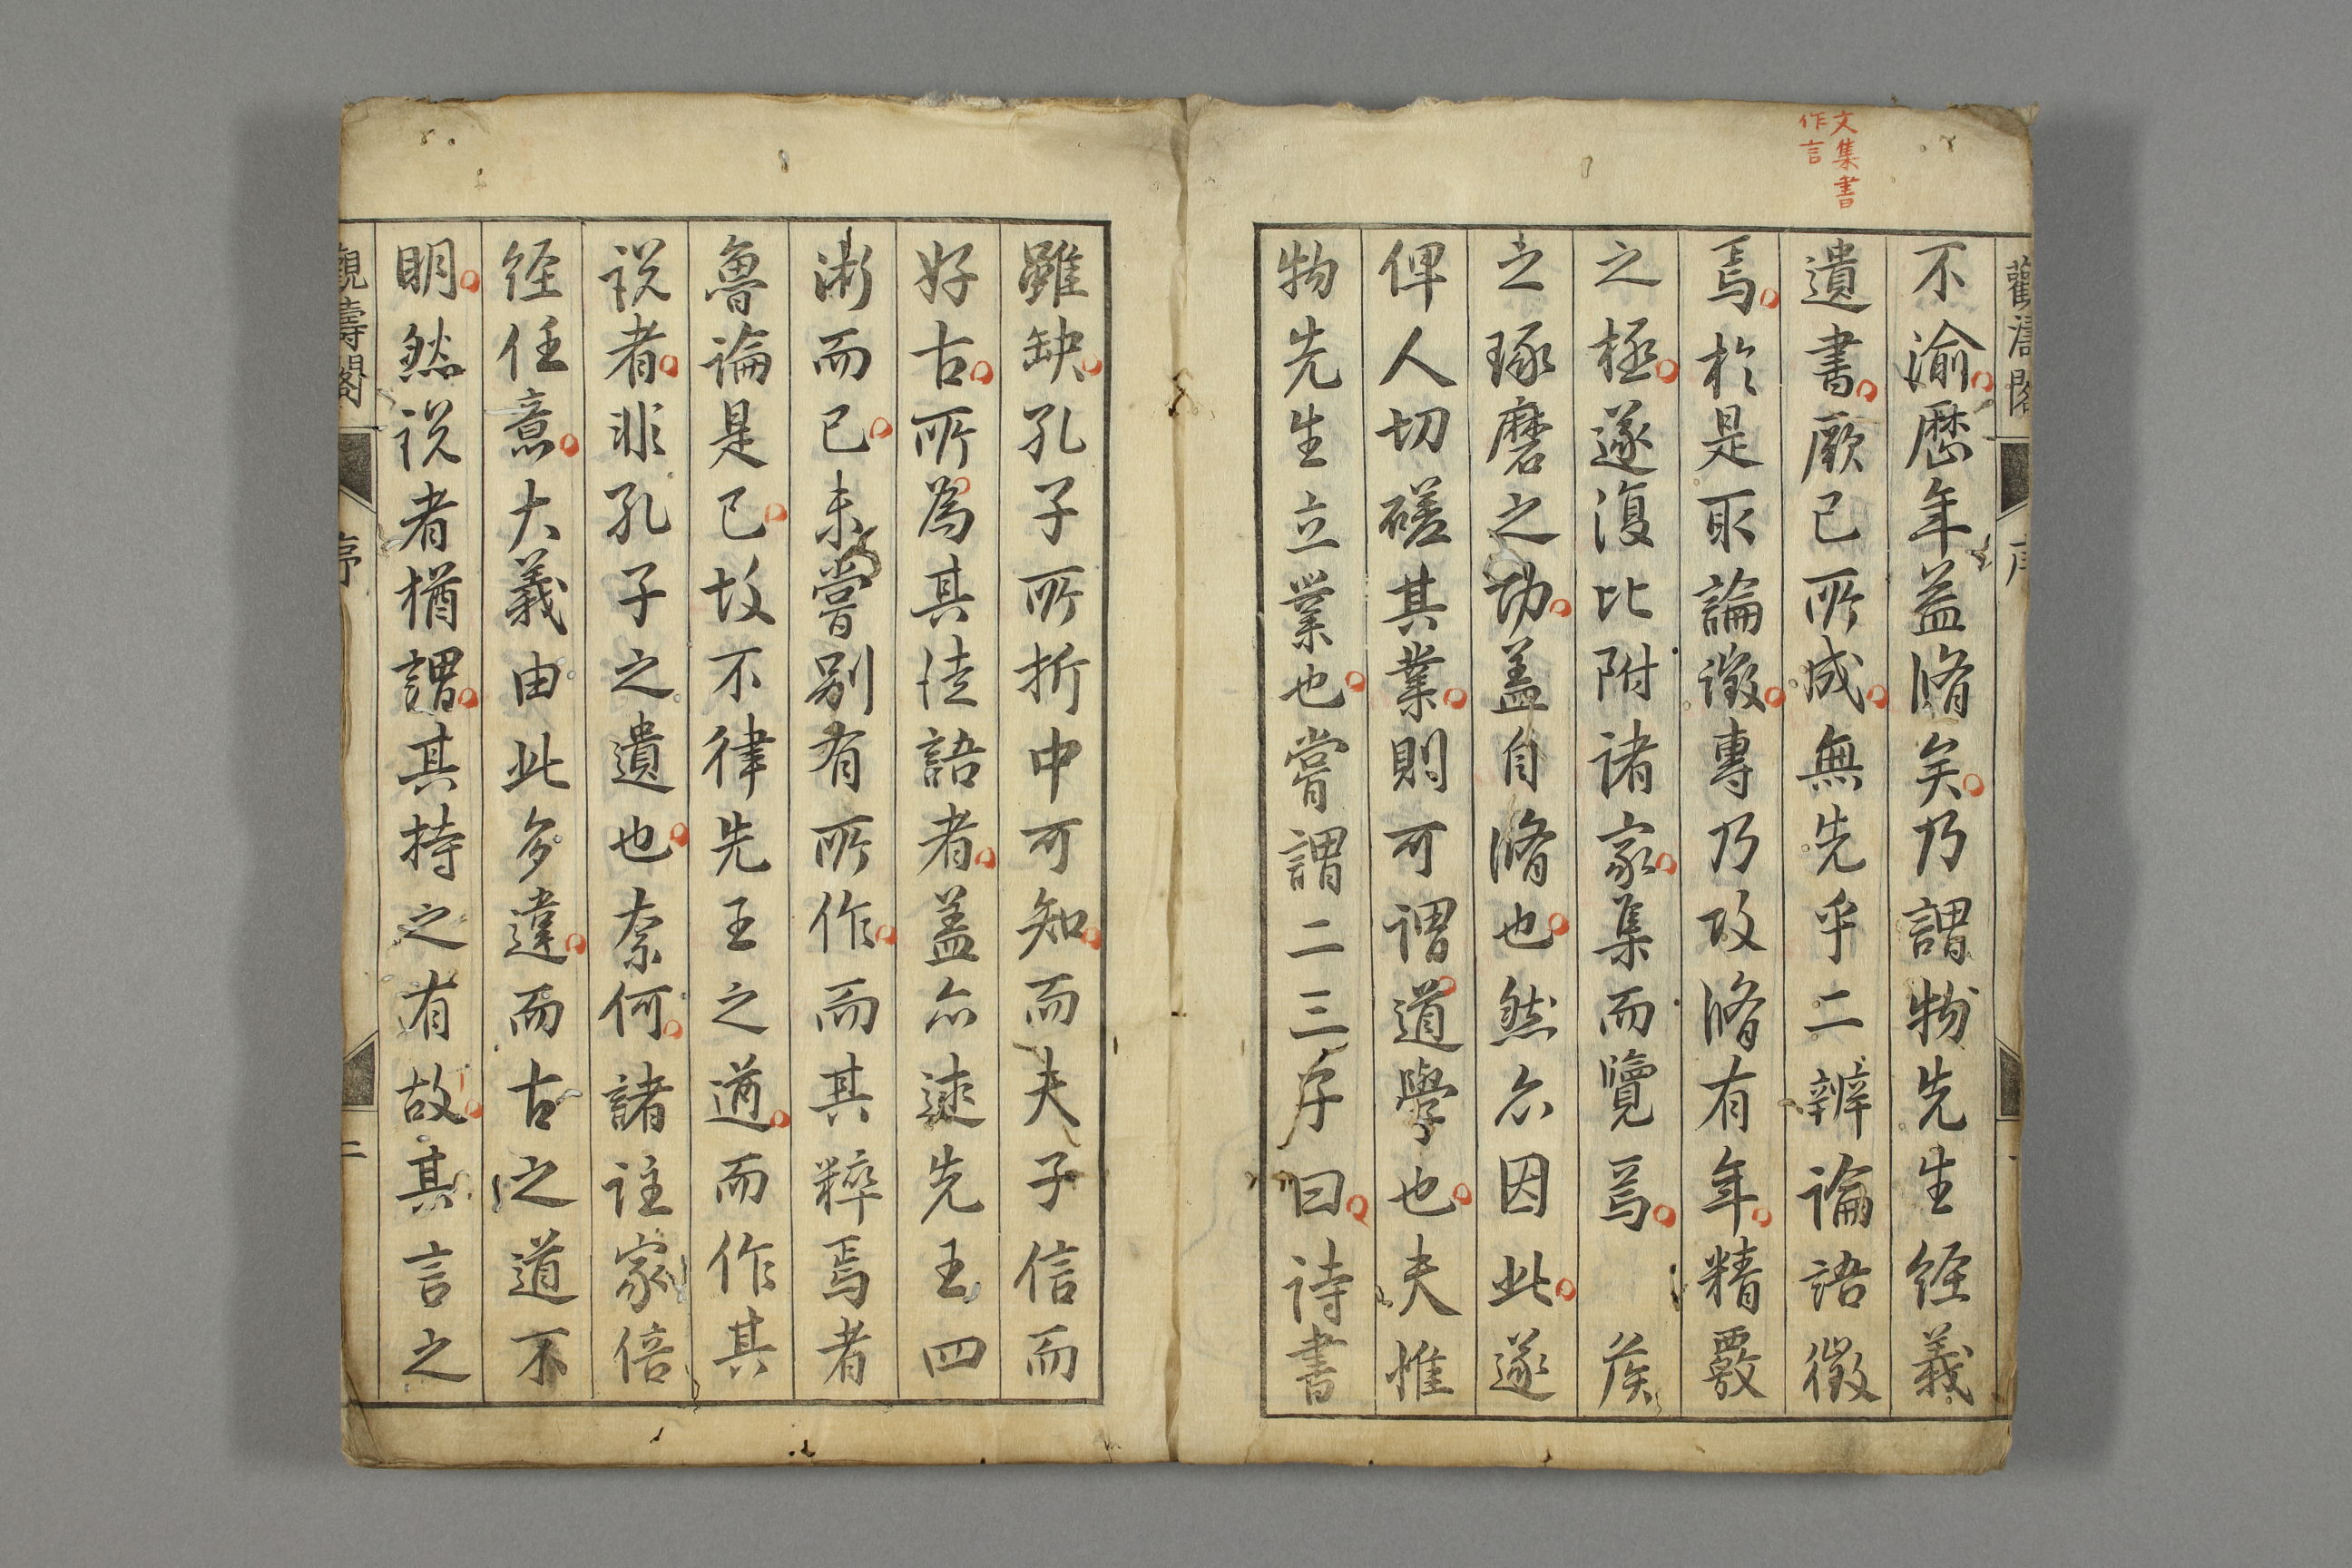 文集書
作言
不渝歷年蓋脩矣乃謂物先生經義
遺書厥已所成無先乎二辨論語徵
焉於是取論徵專乃攻脩有年精覈
之極遂復比附諸家集而覽焉 侯
之琢磨之功蓋自脩也然亦因此遂
俾人切磋其業則可謂道學也夫惟
物先生立業也嘗謂二三子曰詩書
雖缺孔子所折中可知而夫子信而
好古所為其法語者蓋亦述先王四
術而已未嘗別有所作而其粹焉者
魯論是已故不律先王之道而作其
說者非孔子之遺也奈何諸註家倍
經任意大義由此多違而古之道不
明然說者猶謂其持之有故其言之
觀濤閣
序
二